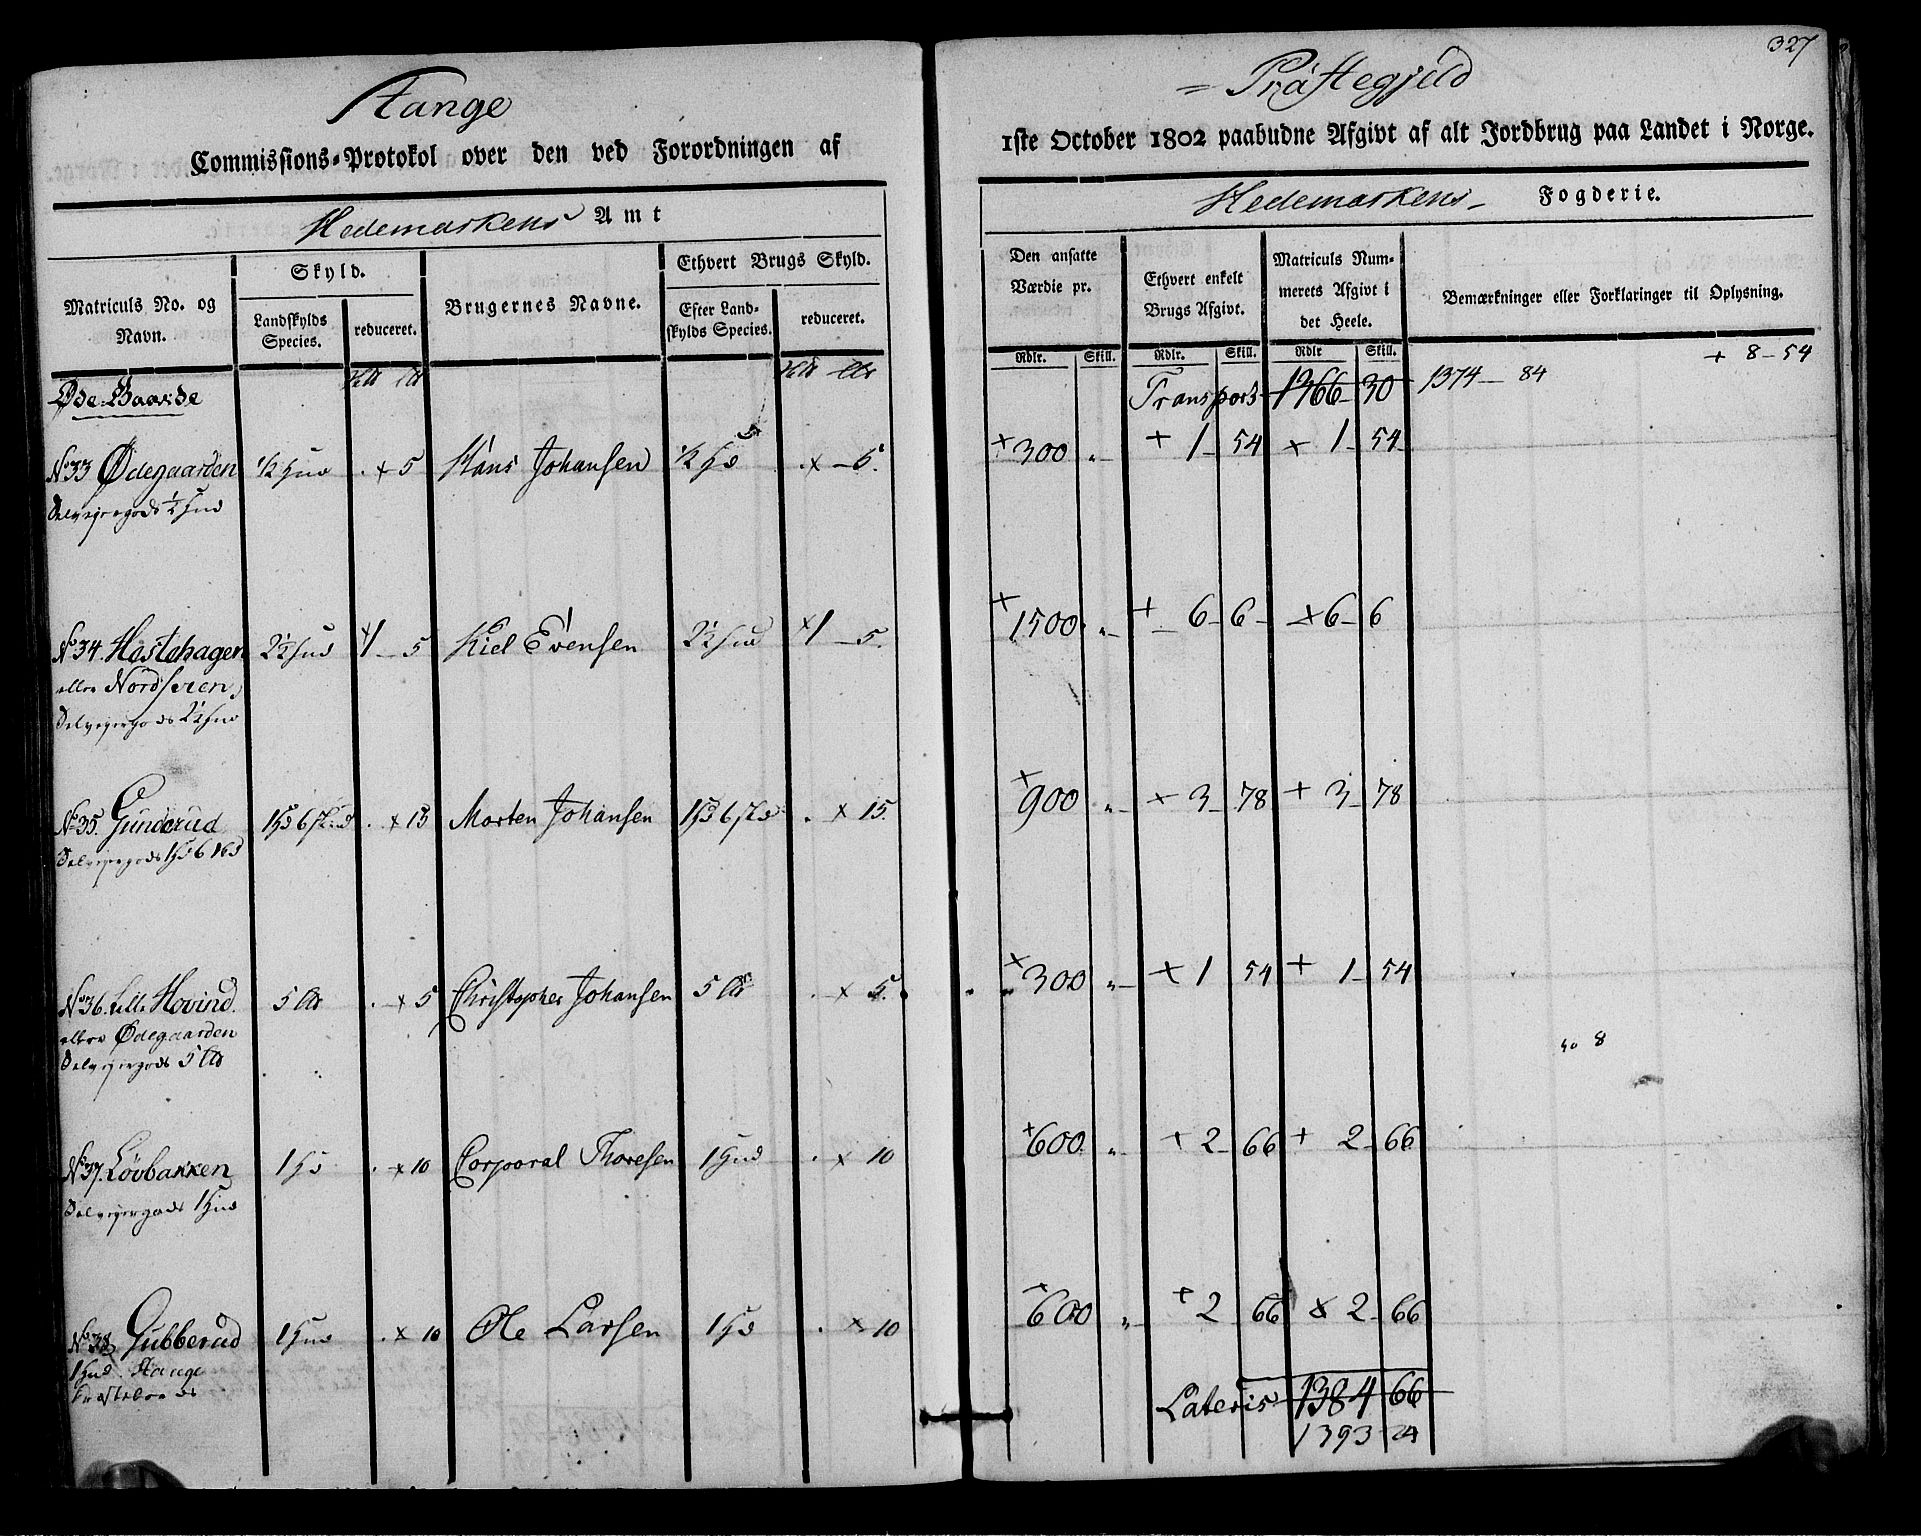 327
Stange = Præstegjeld
Commissions-Protokol over den ved Forordningen af 1ste October 1802 paabudne Afgivt af alt Jordbrug paa Landet i Norge.
Hedemarkens Amt Hedemarkens Fogderie.
Matriculs No. og Navn.
Skyld.
Landskylds Species.
reduceret.
Brugernes Navne.
Ethvert Brugs Skyld.
Efter Landskylds Species.
reduceret.
Den ansatte Værdie pr.
Ethvert enkelt Brugs Afgivt.
Matriculs Nummerets Afgivt i det Heele.
Bemærkninger eller Forklaringer til Oplysning.
Rdlr. Skill. Rdlr. Skill. Rdlr Skill.
+ 8 - 54
Øde-Gaarde Transport 1366 - 30 1374 - 84
No 33 Ødegaarden 1/2 Hud . + 5 Hans Johansen 1/2 Hd . x - 5. + 300 " - + 1 - 54 x 1 - 54
Selveiergods 1/2 Hud
No 34. Hestehagen 2 1/2 Hud x 1 - 5 Kiel Evensen 2 1/2 Hud x 1 - 5. + 1500 " - + 6 - 6 - x 6 - 6
eller Nordsveen,
Selveiergods 2 1/2 Hud
No 35. Gunderud 1 Hd 6 skind . x 15 Morten Johansen 1 Hd 6 skd . x 15. + 900 " - + 3 - 78 + 3 - 78
Selveiergods 1 Hd 6 skd
No 36. Lille Hovind. 5 Lb . x 5 Christopher Johansen 5 Lb . x 5. + 300 " - + 1 54 + 1 - 54
eller Ødegaarden
Selveiergods 5 Lb
8
No 37. Løvbakken 1 Hd . x 10 Corporal Thoresen 1 Hud . x 10 + 600 " - + 2 - 66 + 2 - 66
Selveiergods 1 Hud
No 38 Gubberud 1 Hud . x 10 Ole Larsen 1 Hd . x 10 + 600 " - + 2 66 x 2 - 66
1 Hud Stange
Præstebords
Lateris 1384 66
1393 - 24